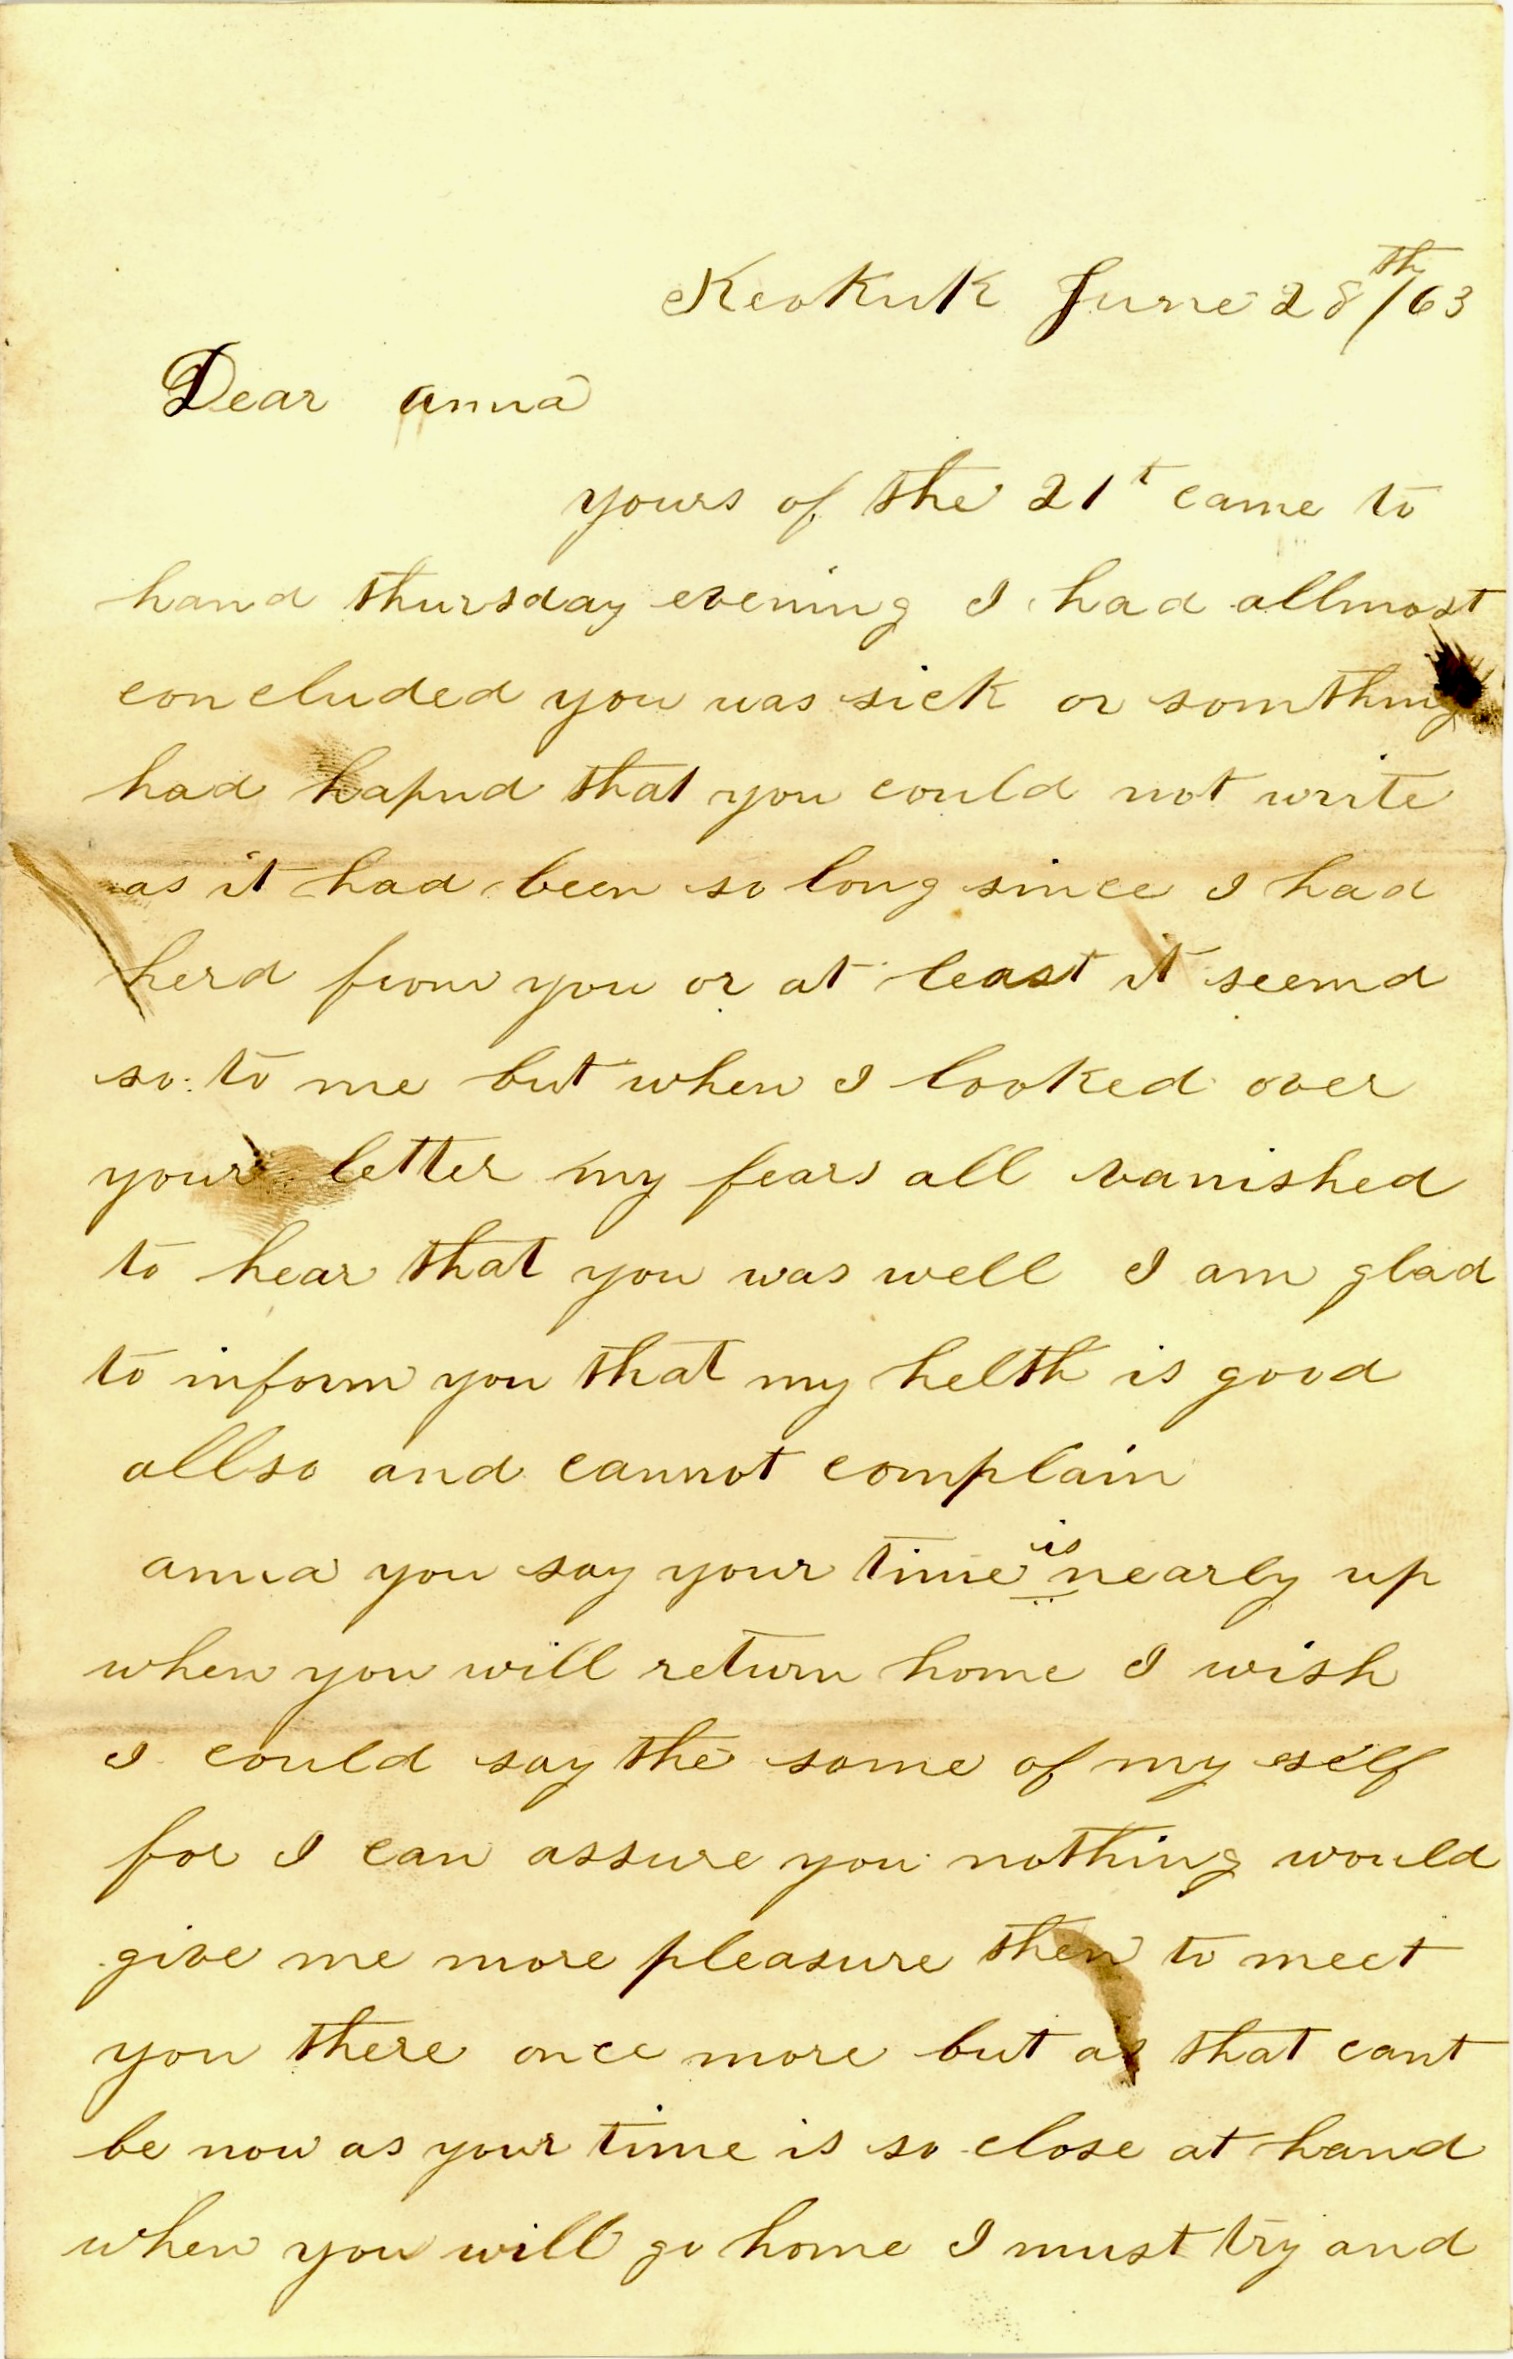 Keokuk June 28th/63
Dear anna
yours of the 21t came to
hand thursday evening I had allmost
concluded you was sick or somthing
had hapnd that you could not write
as it had been so long since I had
herd from you or at least it seemd
so to me but when I looked over
your letter my fears all vanished
to hear that you was well I am glad
to inform you that my helth is good
allso and cannot complain
anna you say your time is nearly up
when you will return home I wish
I could say the same of my self
for I can assure you nothing would
give me more pleasure then to meet
you there once more but as that cant
be now as your time is so close at hand
when you will go home I must try and